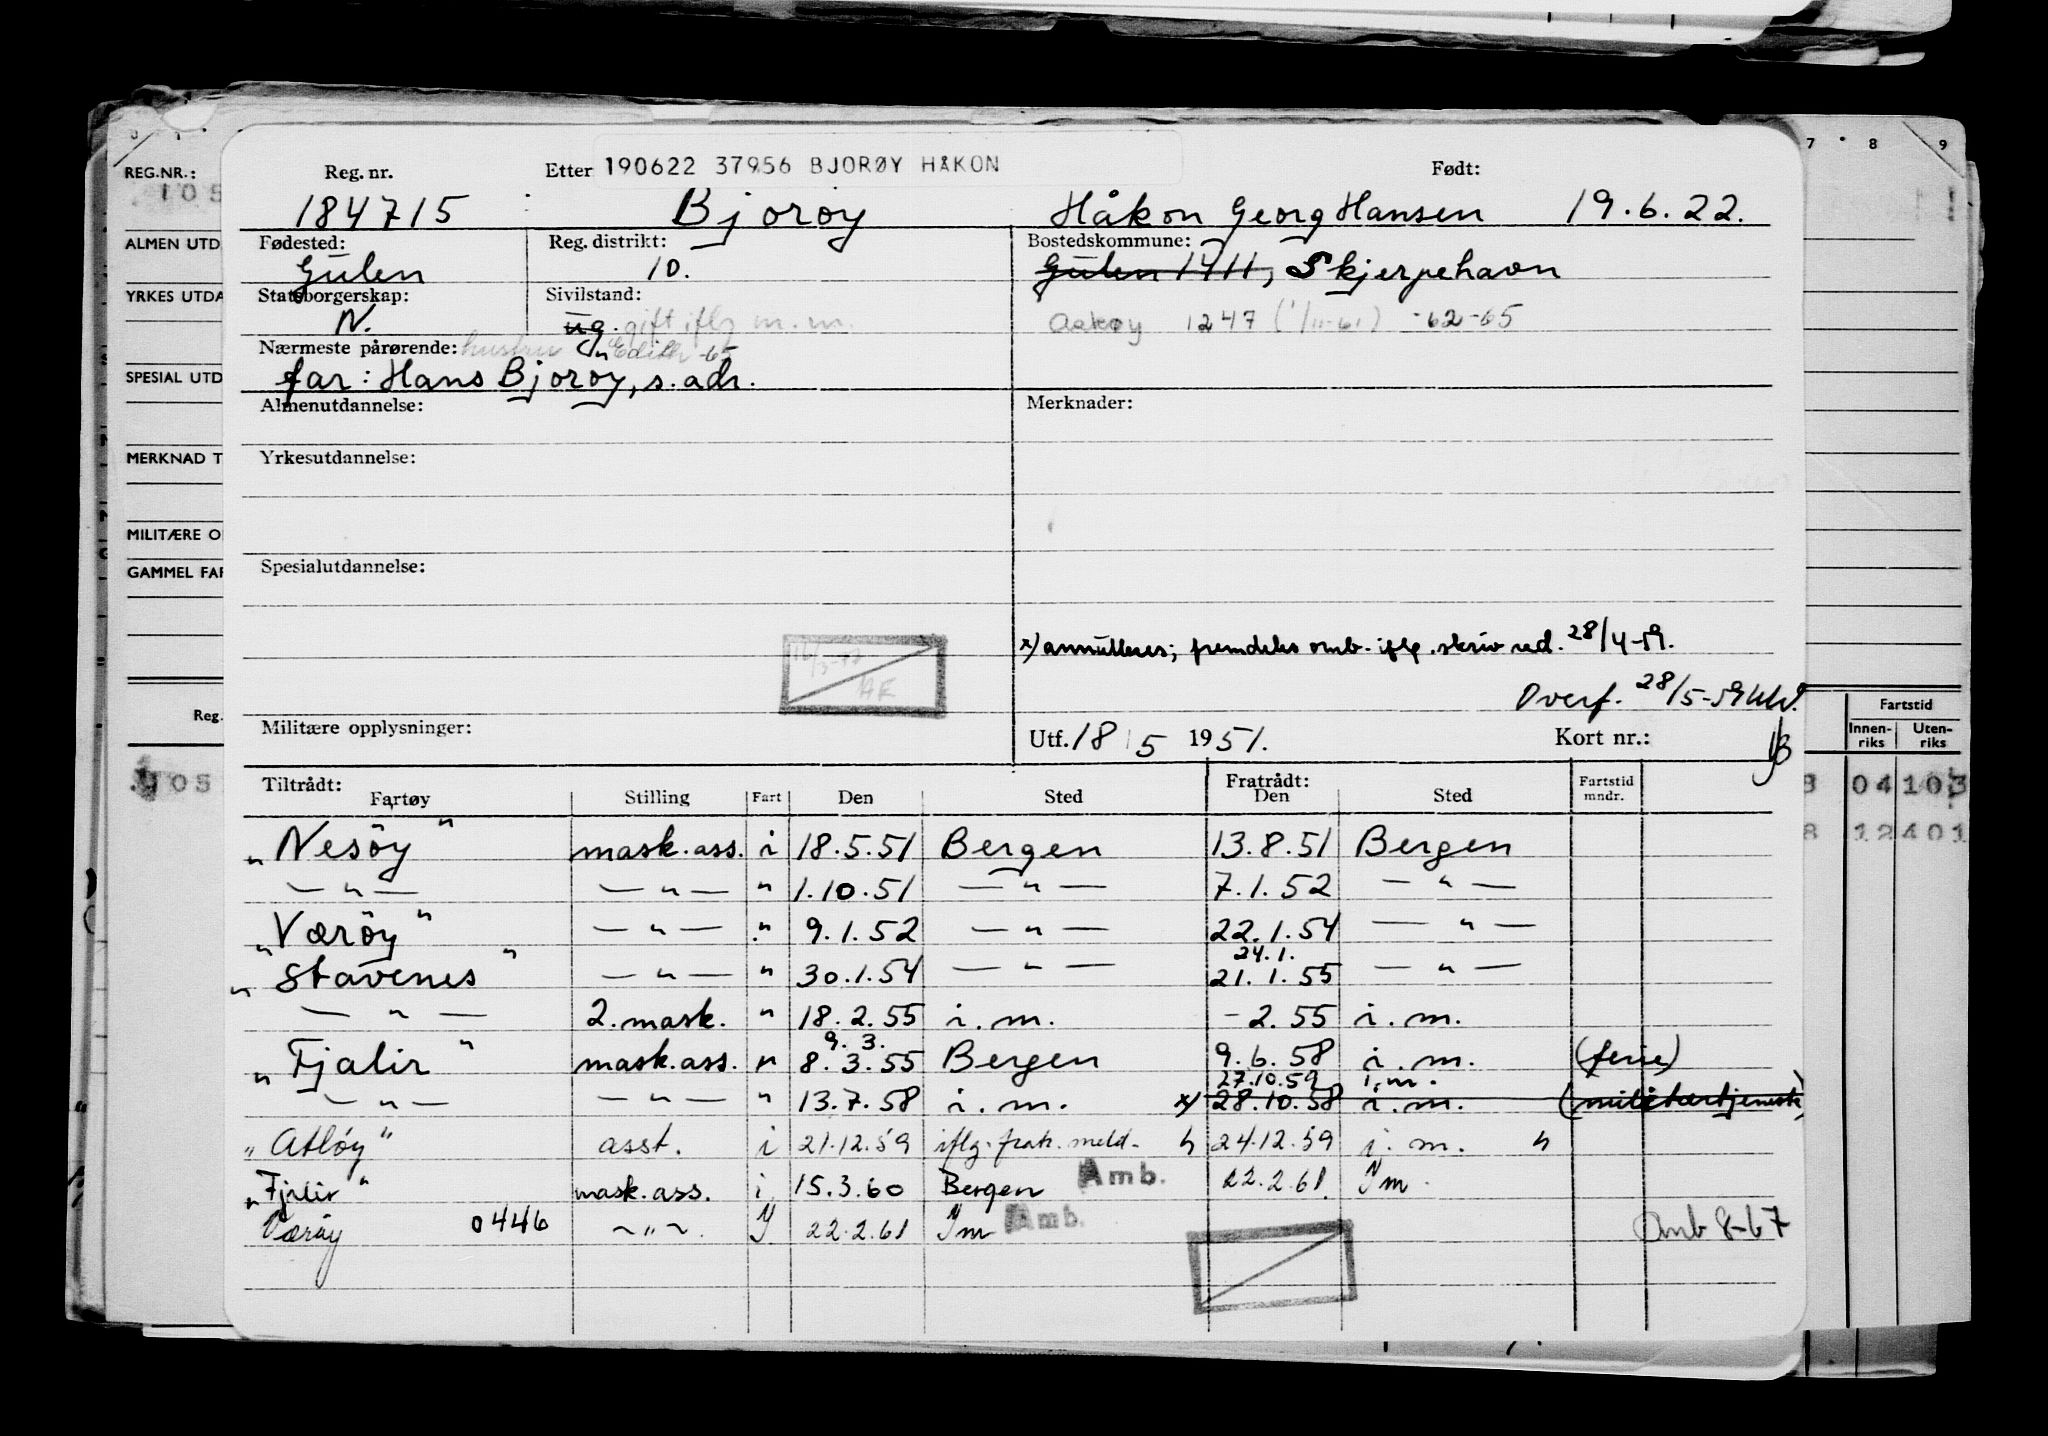 REG.NR.:
105
ALMEN UTD
YRKES UTDA
SPESIAL UTD
MERKNAD T
MILITÆRE O
GAMMEL FAR
Reg.
105
7 8 9
Fartstid
Innen-riks Uten-riks
8 04 103
8 12 401
Reg. nr. Etter 190622 37956 BJORØY HÅKON Født:
184715 Bjorøy Håkon Georg Hansen 19.6.22.
Fødested: Reg. distrikt: Bostedskommune:
Gulen 10. Gulen 1411, Skjerjehavn
Statsborgerskap: Sivilstand:
N. ug. gift iflg m.m. Askøy 1247 (1/11-61) -62-65
Nærmeste pårørende: hustru Edith -65
far: Hans Bjorøy, s. adr.
Almenutdannelse: Merknader:
Yrkesutdannelse:
Spesialutdannelse:
x) annulleres; fremdeles omb. iflg. skriv red. 28/4-59.
Overf. 28/5-59
Militære opplysninger: Utf. 18/5 1951. Kort nr.:
Tiltrådt: Fratrådt:
Fartøy Stilling Fart Den Sted Den Sted Fartstid mndr.
"Nesøy" mask.ass. i 18.5.51 Bergen 13.8.51 Bergen
— " — — " — " 1.10.51 — " — 7.1.52 — " —
"Værøy" — " — " 9.1.52 — " — 22.1.54 — " —
24.1.
"Stavenes" — " — " 30.1.54 — " — 21.1.55 — " —
— " — 2.mask. " 18.2.55 i.m. -2.55 i.m.
9.3.
"Fjalir" mask.ass. " 8.3.55 Bergen 9.6.58 i.m. (ferie)
27.10.59 i.m.
— " — — " — " 13.7.58 i.m. x) 28.10.58 i.m. (militærtjeneste)
"Atløy" asst. i 21.12.59 iflg. fratr. meld. 24.12.59 i.m.
"Fjalir" mask.ass. i 15.3.60 Bergen Amb. 22.2.61 Im.
Værøy 0446 ~ " ~ Y 22.2.61 Im Amb. Omb 8-67